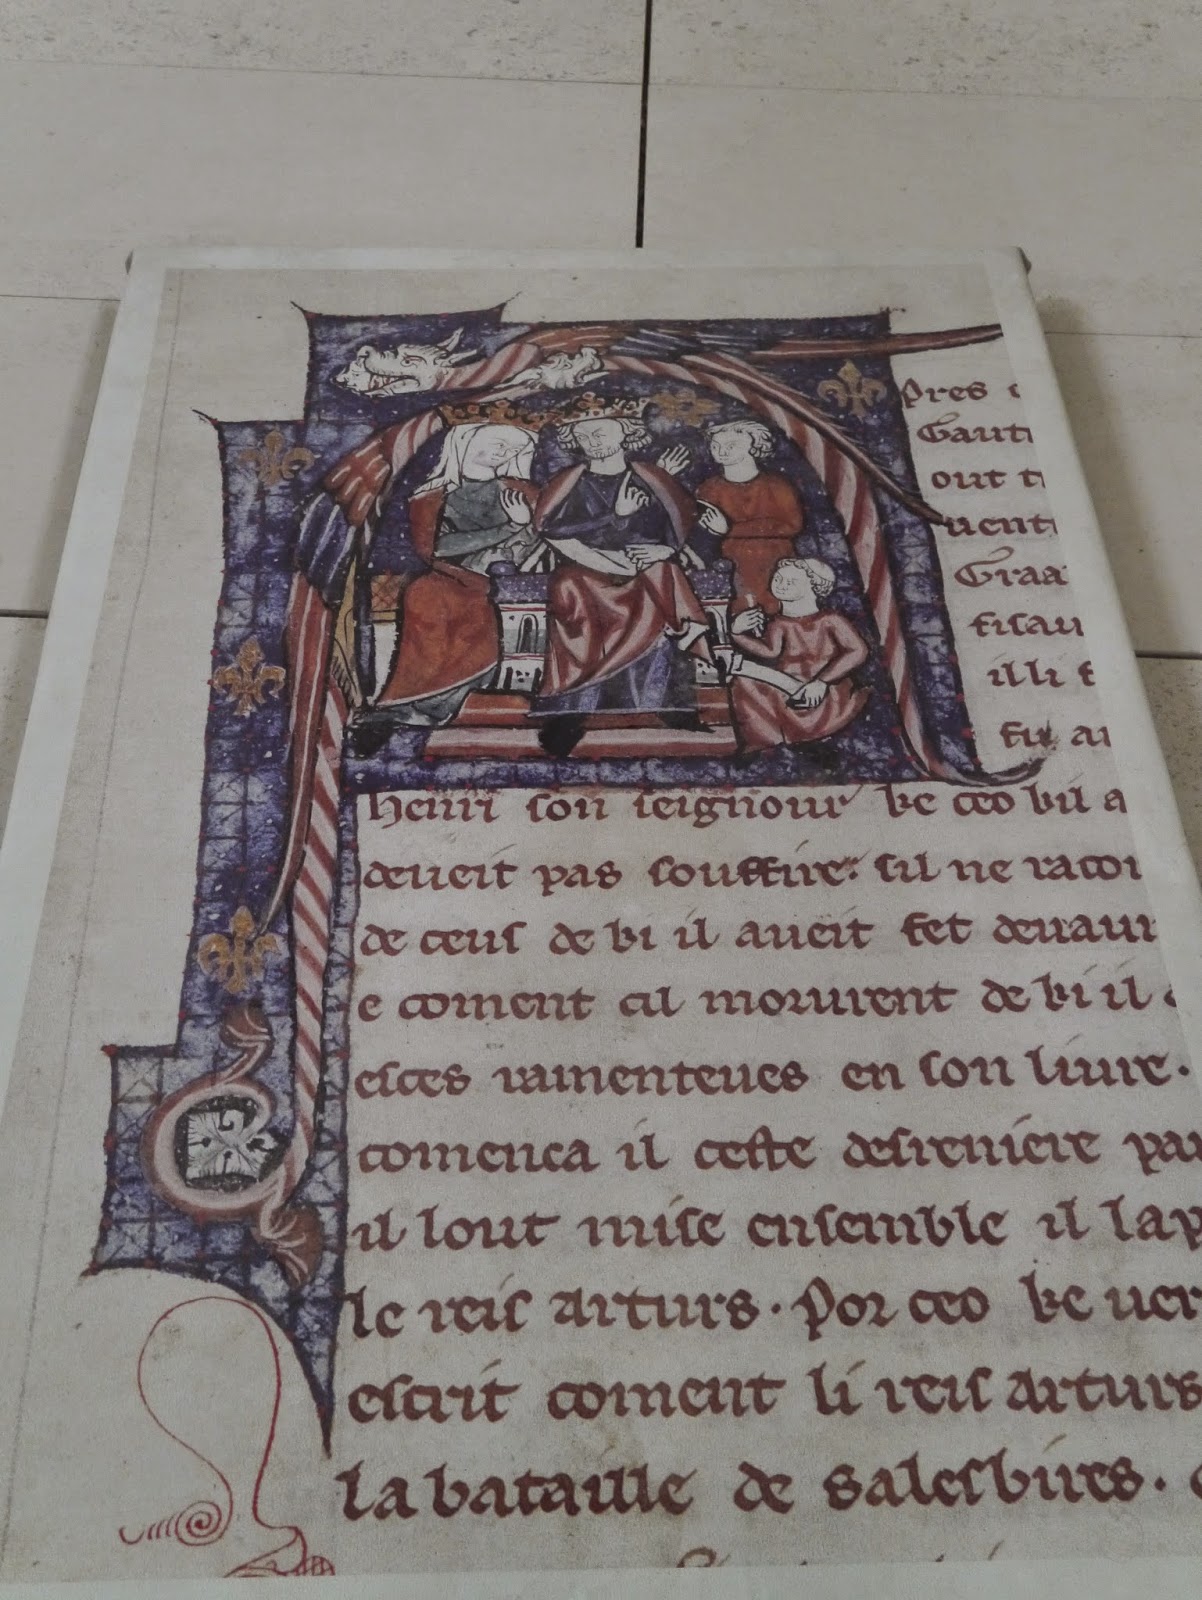 Pres
Gaut
out t
uent
Graa
fisau
illi f
fu au
henri son seignour ke ceo kil a
deueit pas souffire. sil ne racon
de ceus de ki il aueit fet deuaun
e coment cil morurent de ki il a
esces ramenteues en son liure.
comenca il ceste desreniere par
il lout mise ensemble il lap
le reis arturs. Por ceo ke uer
escrit coment li reis arturs
la bataille de salesbires.